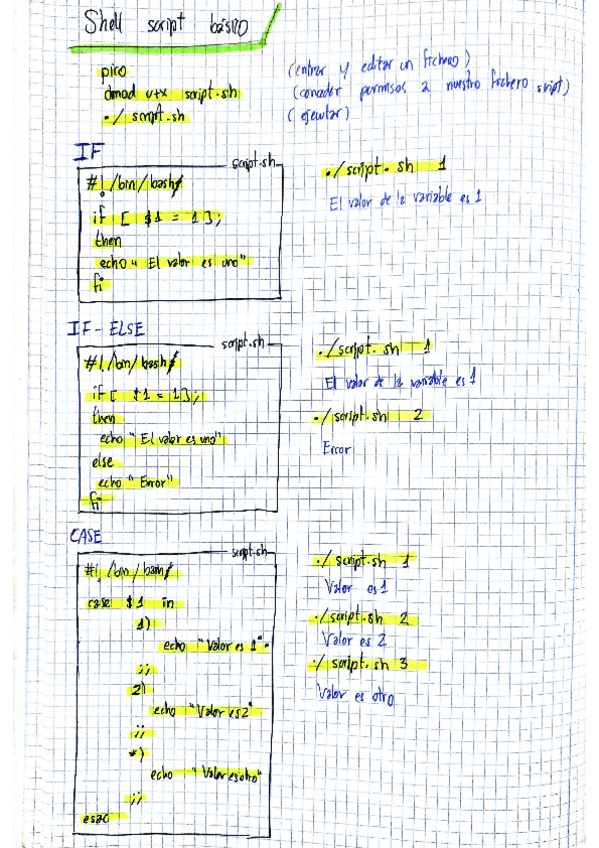 Shell script básico
pico (entrar y editar un fichero)
chmod u+x script.sh (conceder permisos a nuestro fichero script)
./ script.sh (ejecutar)
IF
script.sh
#! /bin/bash
if [ $1 = 1 ];
then
echo " El valor es uno"
fi
./script.sh 1
El valor de la variable es 1
IF - ELSE
script.sh
#! /bin/bash
if [ $1 = 1 ];
then
echo " El valor es uno"
else
echo " Error"
fi
./script.sh 1
El valor de la variable es 1
./script.sh 2
Error
CASE
script.sh
#! /bin/bash
case $1 in
1)
echo "Valor es 1"
;;
2)
echo "Valor es 2"
;;
*)
echo "Valor es otro"
;;
esac
./script.sh 1
Valor es 1
./script.sh 2
Valor es 2
./script.sh 3
Valor es otro